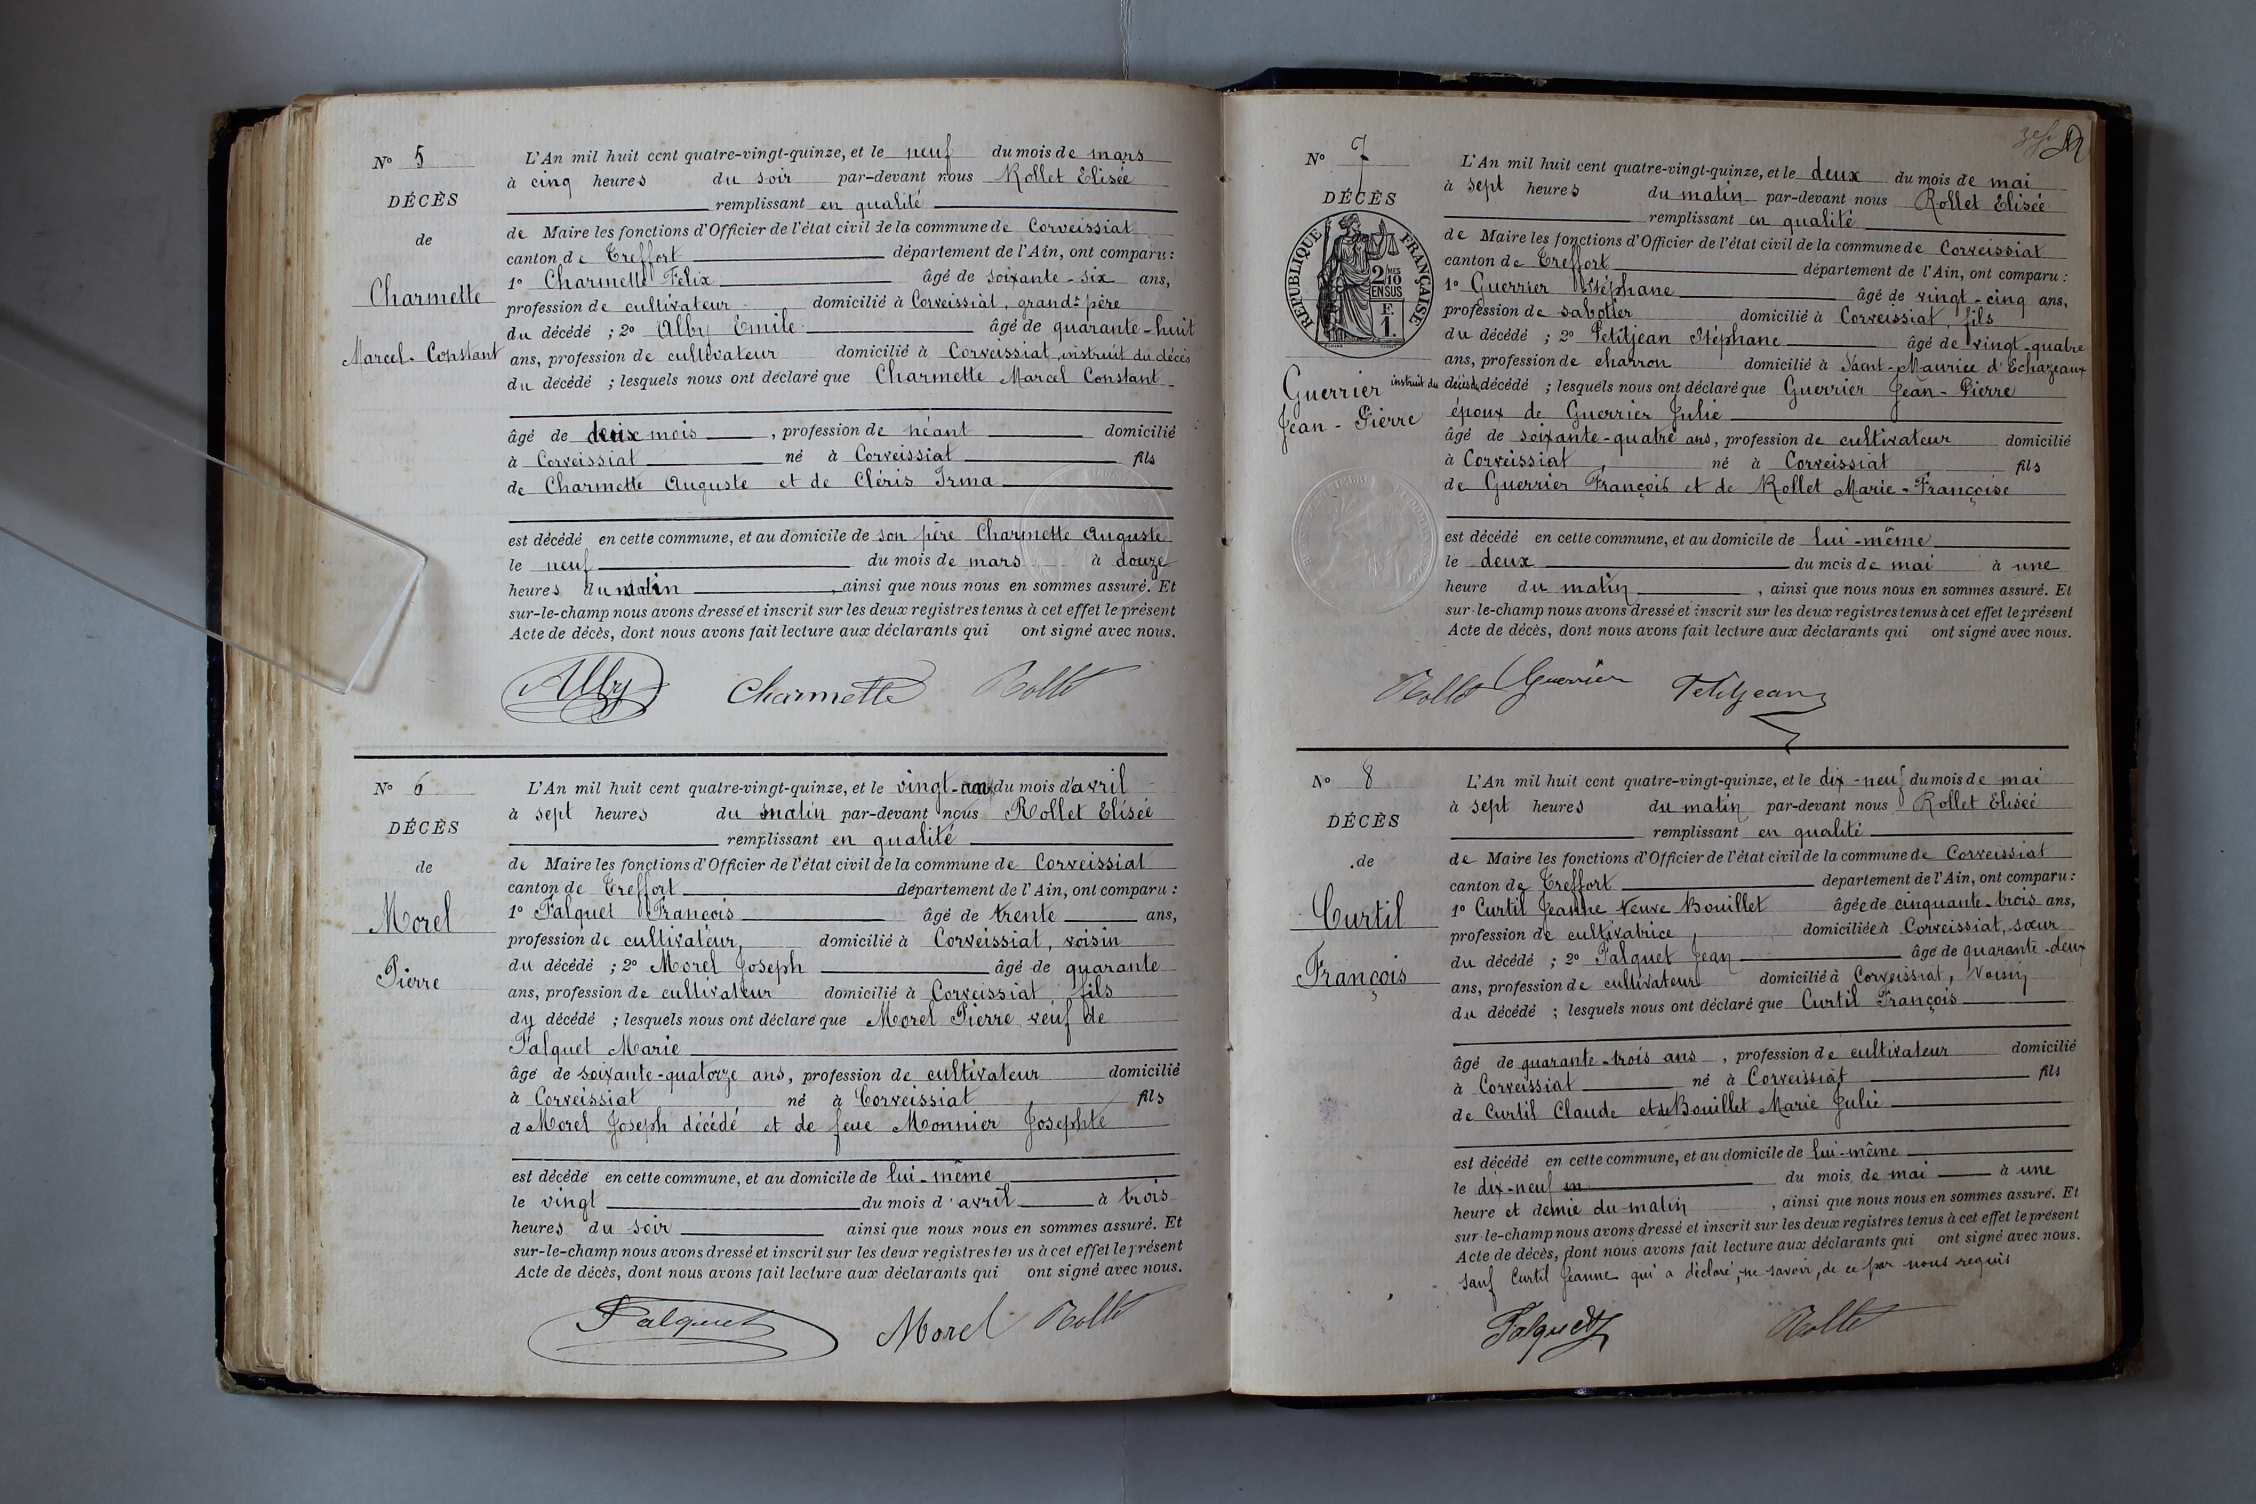 N° 5
DÉCÈS
de
Charmette
Marcel-Constant
L'An mil huit cent quatre-vingt-quinze, et le neuf du mois de mars
à cinq heures du soir par-devant nous Rollet Elisée
remplissant en qualité
de Maire les fonctions d'Officier de l'état civil de la commune de Corveissiat
canton de Treffort département de l'Ain, ont comparu :
1° Charmette Felix âgé de soixante-six ans,
profession de cultivateur domicilié à Corveissiat, grand-père
du décédé ; 2° Alby Emile âgé de quarante-huit
ans, profession de cultivateur domicilié à Corveissiat, instruit du décès
du décédé ; lesquels nous ont déclaré que Charmette Marcel Constant
âgé de deux mois, profession de néant domicilié
à Corveissiat né à Corveissiat fils
de Charmette Auguste et de Cléris Irma
est décédé en cette commune, et au domicile de son père Charmette Auguste
le neuf du mois de mars à douze
heures du matin, ainsi que nous nous en sommes assuré. Et
sur-le-champ nous avons dressé et inscrit sur les deux registres tenus à cet effet le présent
Acte de décès, dont nous avons fait lecture aux déclarants qui ont signé avec nous.
Alby Charmette Rollet
N° 6
DÉCÈS
de
Morel
Pierre
L'An mil huit cent quatre-vingt-quinze, et le vingt-un du mois d'avril
à sept heures du matin par-devant nous Rollet Elisée
remplissant en qualité
de Maire les fonctions d'Officier de l'état civil de la commune de Corveissiat
canton de Treffort département de l'Ain, ont comparu :
1° Falquet François âgé de trente ans,
profession de cultivateur, domicilié à Corveissiat, voisin
du décédé ; 2° Morel Joseph âgé de quarante
ans, profession de cultivateur domicilié à Corveissiat fils
du décédé ; lesquels nous ont déclaré que Morel Pierre veuf de
Falquet Marie
âgé de soixante-quatorze ans, profession de cultivateur domicilié
à Corveissiat né à Corveissiat fils
de Morel Joseph décédé et de feue Monnier Josephte
est décédé en cette commune, et au domicile de lui-même
le vingt du mois d'avril à trois
heures du soir ainsi que nous nous en sommes assuré. Et
sur-le-champ nous avons dressé et inscrit sur les deux registres tenus à cet effet le présent
Acte de décès, dont nous avons fait lecture aux déclarants qui ont signé avec nous.
Falquet Morel Rollet
N° 7
DÉCÈS
RÉPUBLIQUE FRANÇAISE
2/MES 10
EN SUS
F.
1.
Guerrier
Jean-Pierre
L'An mil huit cent quatre-vingt-quinze, et le deux du mois de mai
à sept heures du matin par-devant nous Rollet Elisée
remplissant en qualité
de Maire les fonctions d'Officier de l'état civil de la commune de Corveissiat
canton de Treffort département de l'Ain, ont comparu :
1° Guerrier Stéphane âgé de vingt-cinq ans,
profession de sabotier domicilié à Corveissiat, fils
du décédé ; 2° Petitjean Stéphane âgé de vingt-quatre
ans, profession de charron domicilié à Saint-Maurice d'Echazeaux
instruit du décès du décédé ; lesquels nous ont déclaré que Guerrier Jean-Pierre
époux de Guerrier Julie
âgé de soixante-quatre ans, profession de cultivateur domicilié
à Corveissiat, né à Corveissiat fils
de Guerrier François et de Rollet Marie-Françoise
est décédé en cette commune, et au domicile de lui-même
le deux du mois de mai à une
heure du matin, ainsi que nous nous en sommes assuré. Et
sur-le-champ nous avons dressé et inscrit sur les deux registres tenus à cet effet le présent
Acte de décès, dont nous avons fait lecture aux déclarants qui ont signé avec nous.
Rollet Guerrier Petitjean
N° 8
DÉCÈS
de
Curtil
François
L'An mil huit cent quatre-vingt-quinze, et le dix-neuf du mois de mai
à sept heures du matin par-devant nous Rollet Elisée
remplissant en qualité
de Maire les fonctions d'Officier de l'état civil de la commune de Corveissiat
canton de Treffort département de l'Ain, ont comparu :
1° Curtil Jeanne Veuve Bouillet âgée de cinquante-trois ans,
profession de cultivatrice, domiciliée à Corveissiat, sœur
du décédé ; 2° Falquet Jean âgé de quarante-deux
ans, profession de cultivateur domicilié à Corveissiat, voisin
du décédé ; lesquels nous ont déclaré que Curtil François
âgé de quarante-trois ans, profession de cultivateur domicilié
à Corveissiat né à Corveissiat fils
de Curtil Claude et de Bouillet Marie Julie
est décédé en cette commune, et au domicile de lui-même
le dix-neuf du mois de mai à une
heure et demie du matin, ainsi que nous nous en sommes assuré. Et
sur-le-champ nous avons dressé et inscrit sur les deux registres tenus à cet effet le présent
Acte de décès, dont nous avons fait lecture aux déclarants qui ont signé avec nous.
sauf Curtil Jeanne qui a déclaré, ne savoir, de ce par nous requis
Falquet Rollet